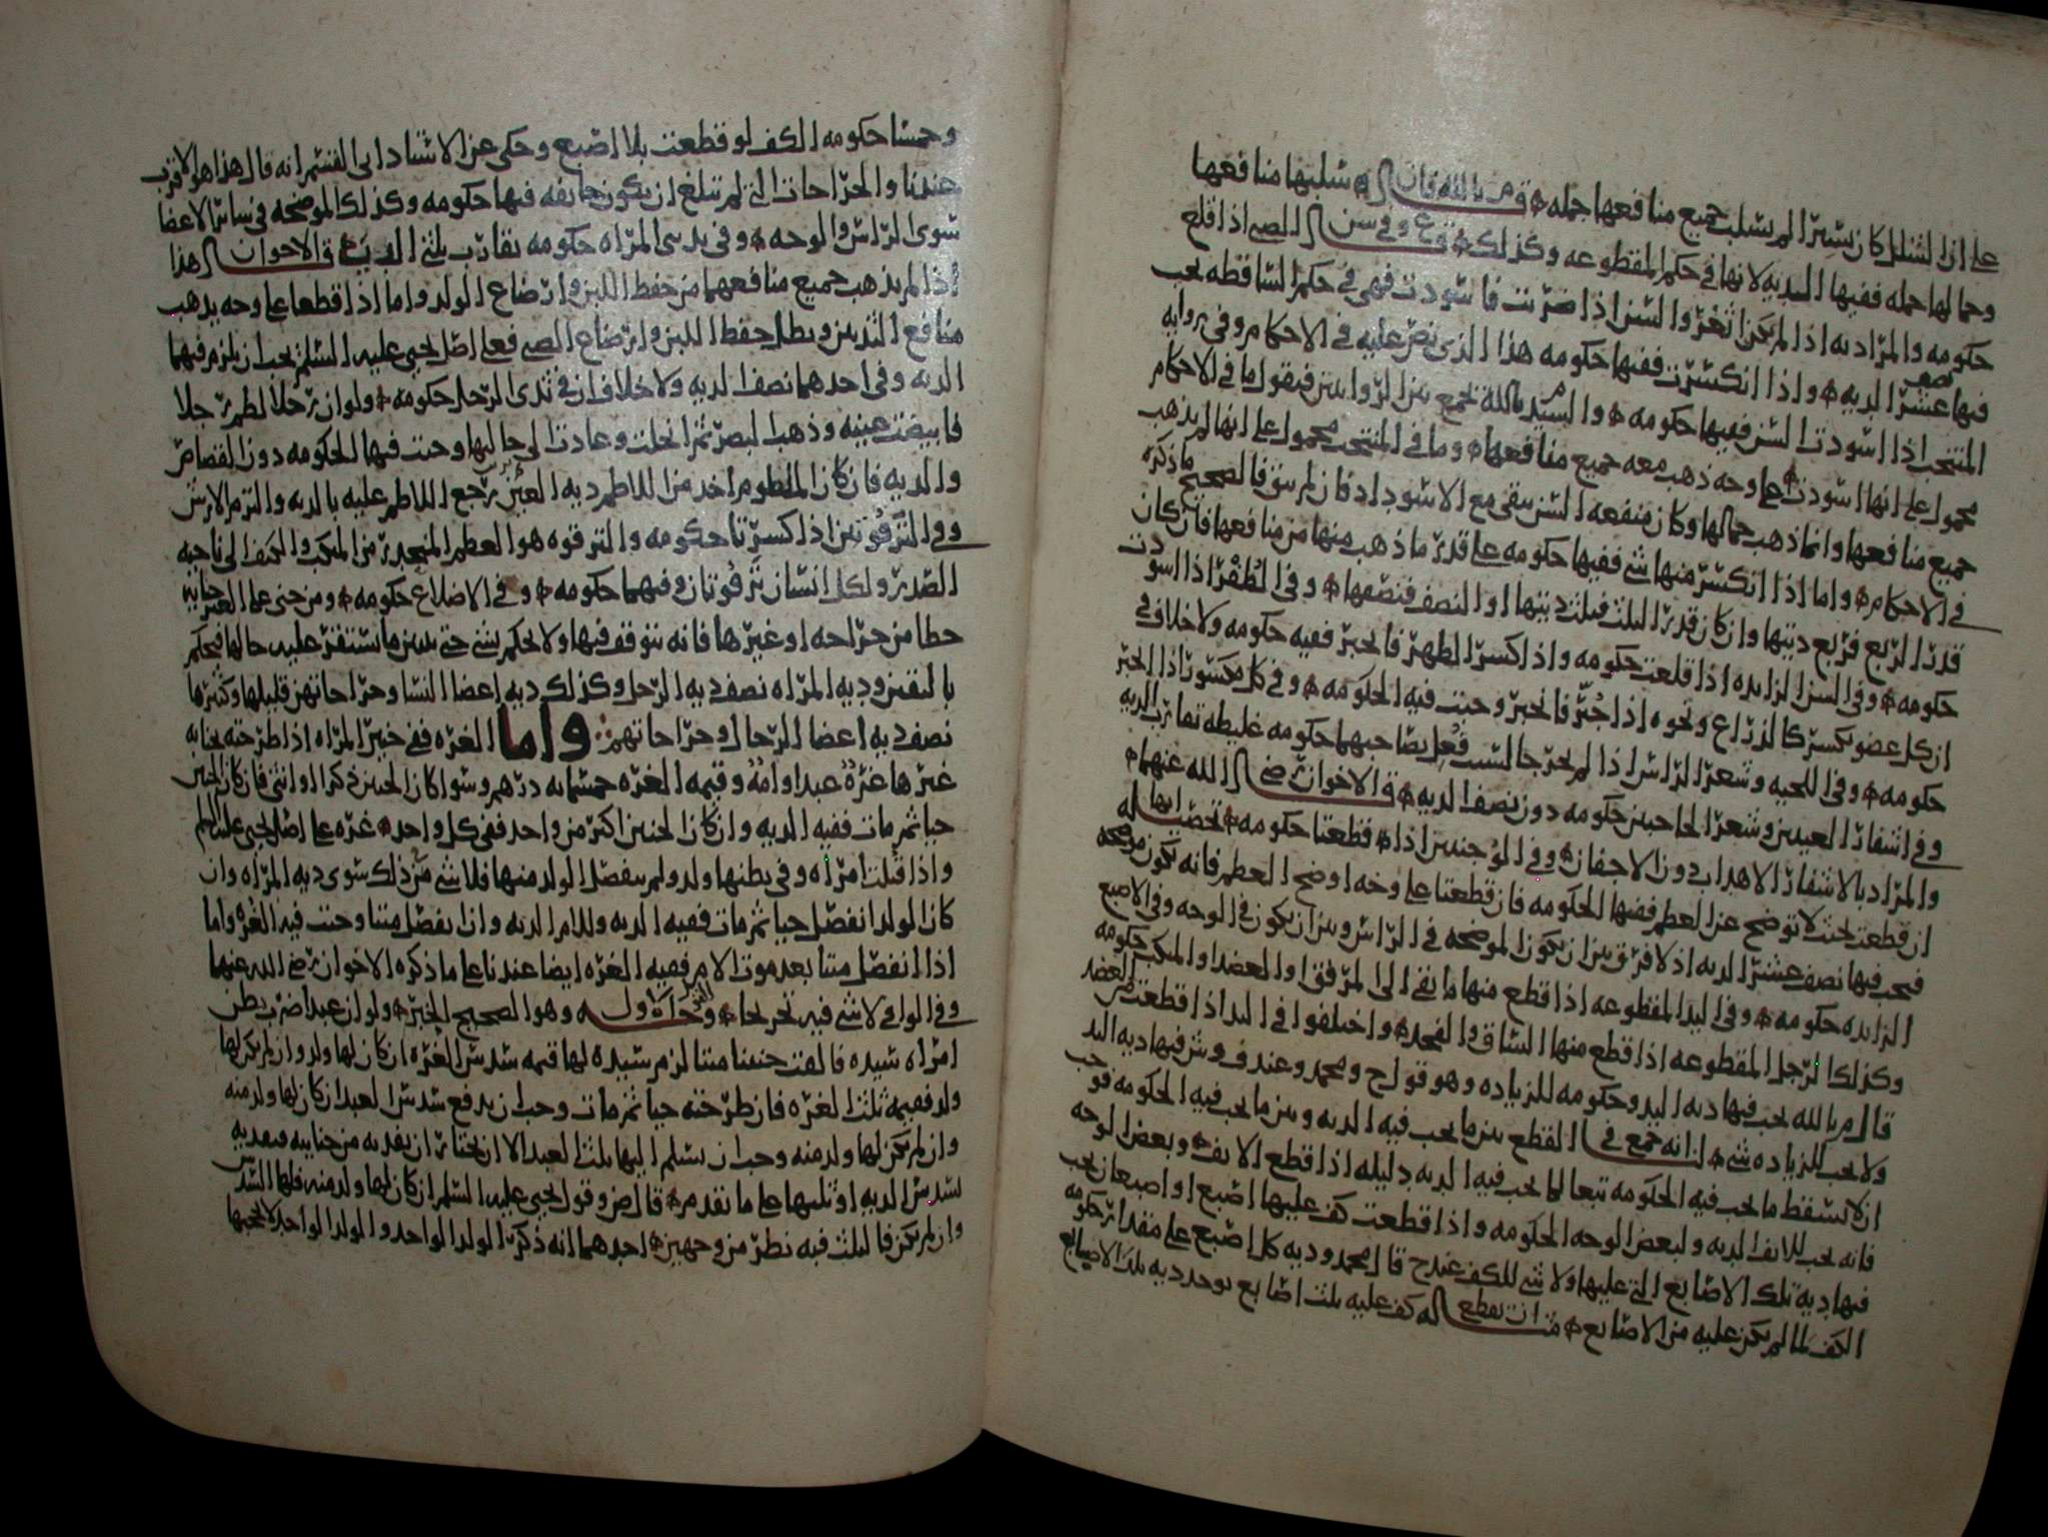 على ان الشلل كان يسيرا لم يسلب جميع منافعها جمله م بالله فان سلبها منافعها
وجمالها جمله ففيها الديه لانها في حكم المقطوعه وكذلك وفي سن الصبي اذا قلع
حكومه والمراد به اذا لم يكن ثغر والسن اذا ضربت فاسودت فهي في حكم الساقطه يجب
فيها نصف عشر الديه واذا انكسرت ففيها حكومه هذا الذي نص عليه في الاحكام وفي روايه
المنتخب اذا اسودت السن ففيها حكومه والسيد م بالله يجمع بين الروايتين فيقول ما في الاحكام
محمول على انها اسودت على وجه ذهب معه جميع منافعها وما في المنتخب محمول على انها لم يذهب
جميع منافعها وانما ذهب جمالها وكان منفعه السن يبقى مع الاسوداد فان لم يبق فالصحيح ما ذكره
في الاحكام واما اذا انكسر منها شي ففيها حكومه على قدر ما ذهب منها من منافعها فان كان
قدر الربع فربع ديتها وان كان قدر الثلث فثلث ديتها او النصف فنصفها وفي الظفر اذا اسودت
حكومه وفي السن الزايده اذا قلعت حكومه واذا كسر الظهر فانجبر ففيه حكومه ولا خلاف في
ان كل عضو يكسر كالذراع ونحوه اذا جبر فانجبر وجبت فيه الحكومه وفي كل مكسور اذا انجبر
حكومه وفي اللحيه وشعر الراس اذا لم يخرجا لسبب فعل بصاحبهما حكومه غليظه تقارب الديه
وفي اشفار العينين وشعر الحاجبين حكومه دون نصف الديه الاخوان رضي الله عنهما
والمراد بالاشفار الاهداب دون الاجفان وفي الوجنتين اذا قطعتا حكومه
ان قطعت بحيث لا توضح عن العظم ففيها الحكومه فان قطعتا على وجه اوضح العظم فانه يكون موضحه
فيجب فيها نصف عشر الديه اذ لا فرق بين ان يكون الموضحه في الراس وبين ان يكون في الوجه وفي الاصبع
الزايده حكومه وفي اليد المقطوعه اذا قطع منها ما بقي الى المرفق او العضد او المنكب حكومه
وكذلك الرجل المقطوعه اذا قطع منها الساق والفخد واختلفوا في اليد اذا قطعت من العضد
قال م بالله يجب فيها ديه اليد وحكومه للزياده وهو قول ح ومحمد وعند ف وش فيها ديه اليد
ولا يجب للزياده شي لنا انه جمع في القطع بين ما يجب فيه الديه وبين ما يجب فيه الحكومه فوجب
ان لا يسقط ما يجب فيه الحكومه تبعا لما يجب فيه الديه دليله اذا قطع الانف وبعض الوجه
فانه يجب للانف الديه ولبعض الوجه الحكومه واذا قطعت كف عليها اصبع او اصبعان يجب
فيها دية تلك الاصابع التي عليها ولا شي للكف عند ح قال محمد وديه كل اصبع على مقدار حكومه
الكف لما لم يكن عليه من الاصابع ان يقطع له كف عليه ثلث اصابع يوخد ديه ثلث الاصابع
وخمسا حكومه الكف لو قطعت بلا اصبع وحكى عن الاستاد ابي القسم انه قال هذا هو الاقرب
عندنا والجراحات التي لم تبلغ ان يكون جايفه فيها حكومه وكذلك الموضحه في سائر الاعضا
سوى الراس والوجه وفي يدي المراه حكومه تقارب ثلث الديه ق الاخوان هذا
اذا لم يذهب جميع منافعهما من حفظ اللبن وارضاع الولد واما اذا قطعا على وجه يذهب
منافع الثديين وبطل حفظ اللبن وارضاع الصبي فعلى اصل يحيى عليه السلم يجب ان يلزم فيهما
الديه وفي احدهما نصف الديه ولا خلاف ان في ثدى الرجل حكومه ولو ان رجلا لطم رجلا
فابيضت عينه وذهب البصر ثم انجلت وعادت الى حالها وجبت فيها الحكومه دون القصاص
والديه فان كان الملطوم اخد من اللاطم ديه العين رجع اللاطم عليه بالديه والتزم الارش
وفي الترقوتين اذا كسرتا حكومه والترقوه هو العظم المنحدر من المنكب والكتف الى ناحيه
الصدر ولكل انسان ترقوتان وفيهما حكومه وفي الاضلاع حكومه ومن جنى على الغير جنايه
خطا من جراحه او غيرها فانه يتوقف فيها ولا يحكم بشي حتى يتبين ما يستقر عليه حالها فيحكم
باليقين وديه المراه نصف ديه الرجل وكذلك ديه اعضا النسا وجراحاتهن قليلها وكثيرها
نصف ديه اعضا الرجال وجراحاتهم واما الغره ففي جنين المراه اذا طرحته بجنايه
غيرها غرة عبد او امة وقيمه الغره خمسمايه درهم وسوا كان الجنين ذكرا او انثى فان كان الجنين
حيا ثم مات ففيه الديه وان كان الجنين اكثر من واحد ففي كل واحد غره على اصل يحيى عليه السلم
واذا قتلت امراه وفي بطنها ولد ولم ينفصل الولد منها فلا شي من ذلك سوى ديه المراه وان
كان الولد انفصل حيا ثم مات ففيه الديه وللام الديه وان انفصل ميتا وجبت فيه الغره واما
اذا انفصل ميتا بعد موت الام ففيه الغره ايضا عندنا على ما ذكره الاخوان رضي الله عنهما
وفي الوافي لا شي فيه تخريجا وهو الصحيح الخبر ولو ان عبدا ضرب بطن
امراه سيده فالقت جنينا ميتا لزم سيده لها قيمه سدس الغره ان كان لها ولد وان لم يكن لها
ولد فقيمه ثلث الغره فان طرحته حيا ثم مات وجب ان يدفع سدس العبد ان كان لها ولد منه
وان لم يكن لها ولد منه وجب ان يسلم اليها ثلث العبد الا ان يختار ان يفديه من جنايته فيفديه
بسدس الديه او ثلثها على ما تقدم قال ض وقول يحيى عليه السلم ان كان لها ولد منه فلها السدس
وان لم يكن فالثلث فيه نظر من وجهين احدهما انه ذكر الولد الواحد والولد الواحد لا يحجبها